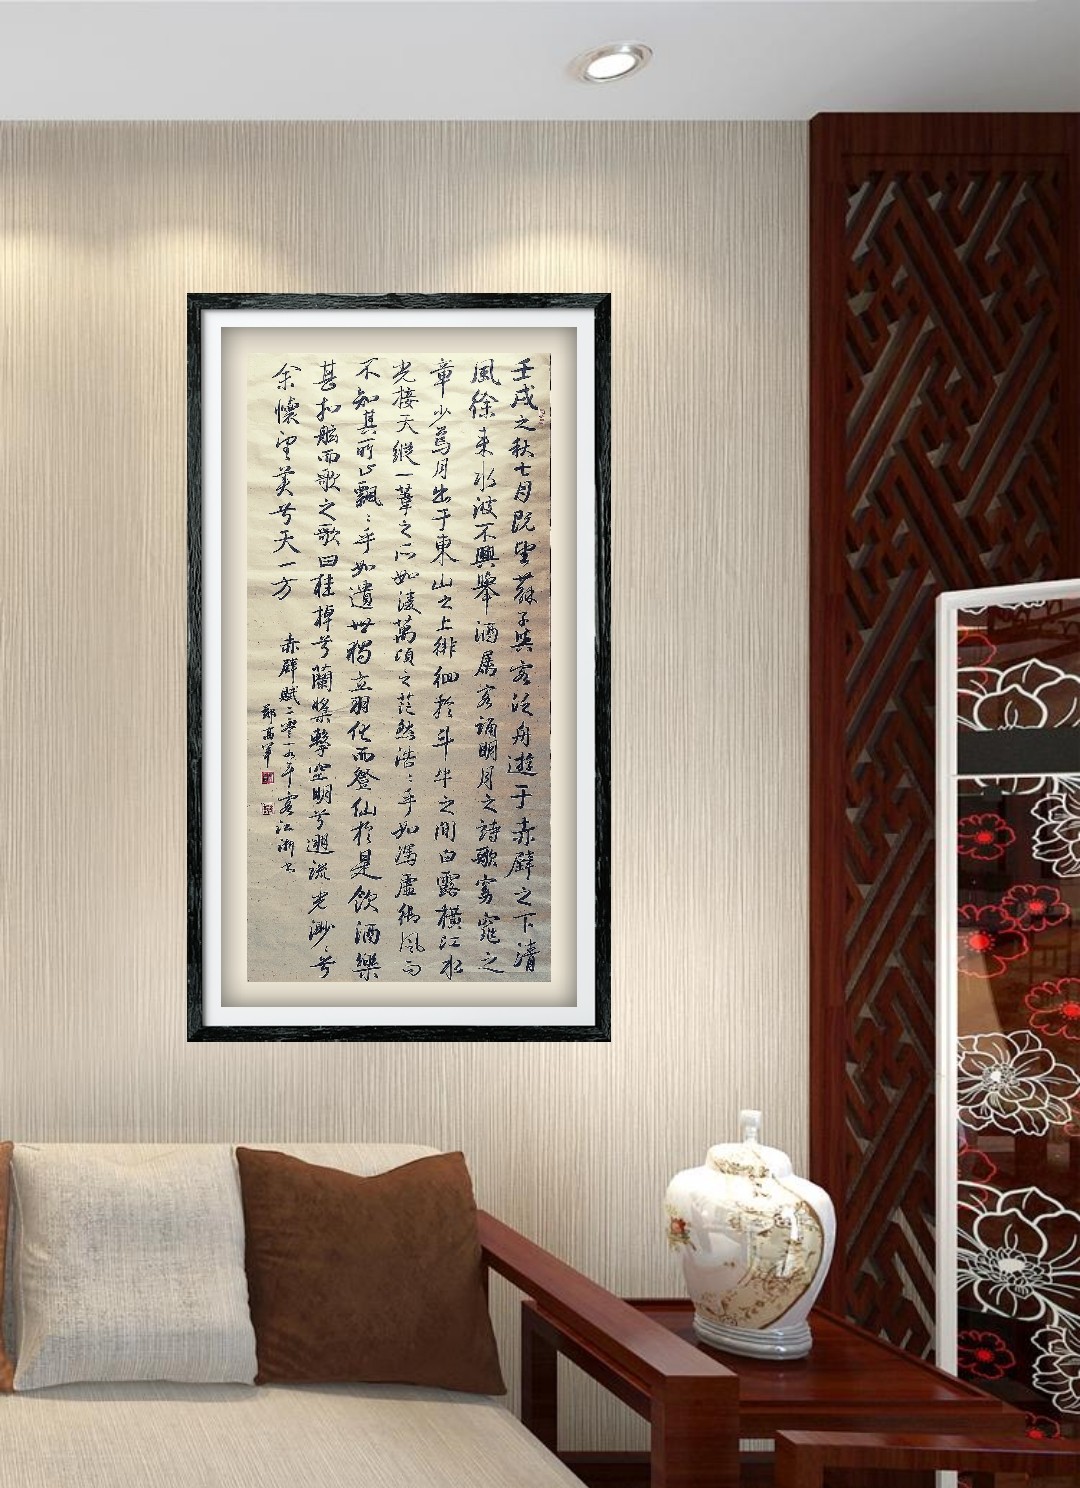 壬戌之秋七月既望蘇子與客泛舟遊于赤壁之下清
風徐來水波不興舉酒屬客誦明月之詩歌窈窕之
章少焉月出于東山之上徘徊於斗牛之間白露橫江水
光接天縱一葦之所如淩萬頃之茫然浩〻乎如馮虛御風而
不知其所止飄〻乎如遺世獨立羽化而登仙於是飲酒樂
甚扣舷而歌之歌曰桂棹兮蘭槳擊空明兮遡流光渺〻兮
余懷望美兮天一方
赤壁賦二零一九年客江浙書
鄭高軍